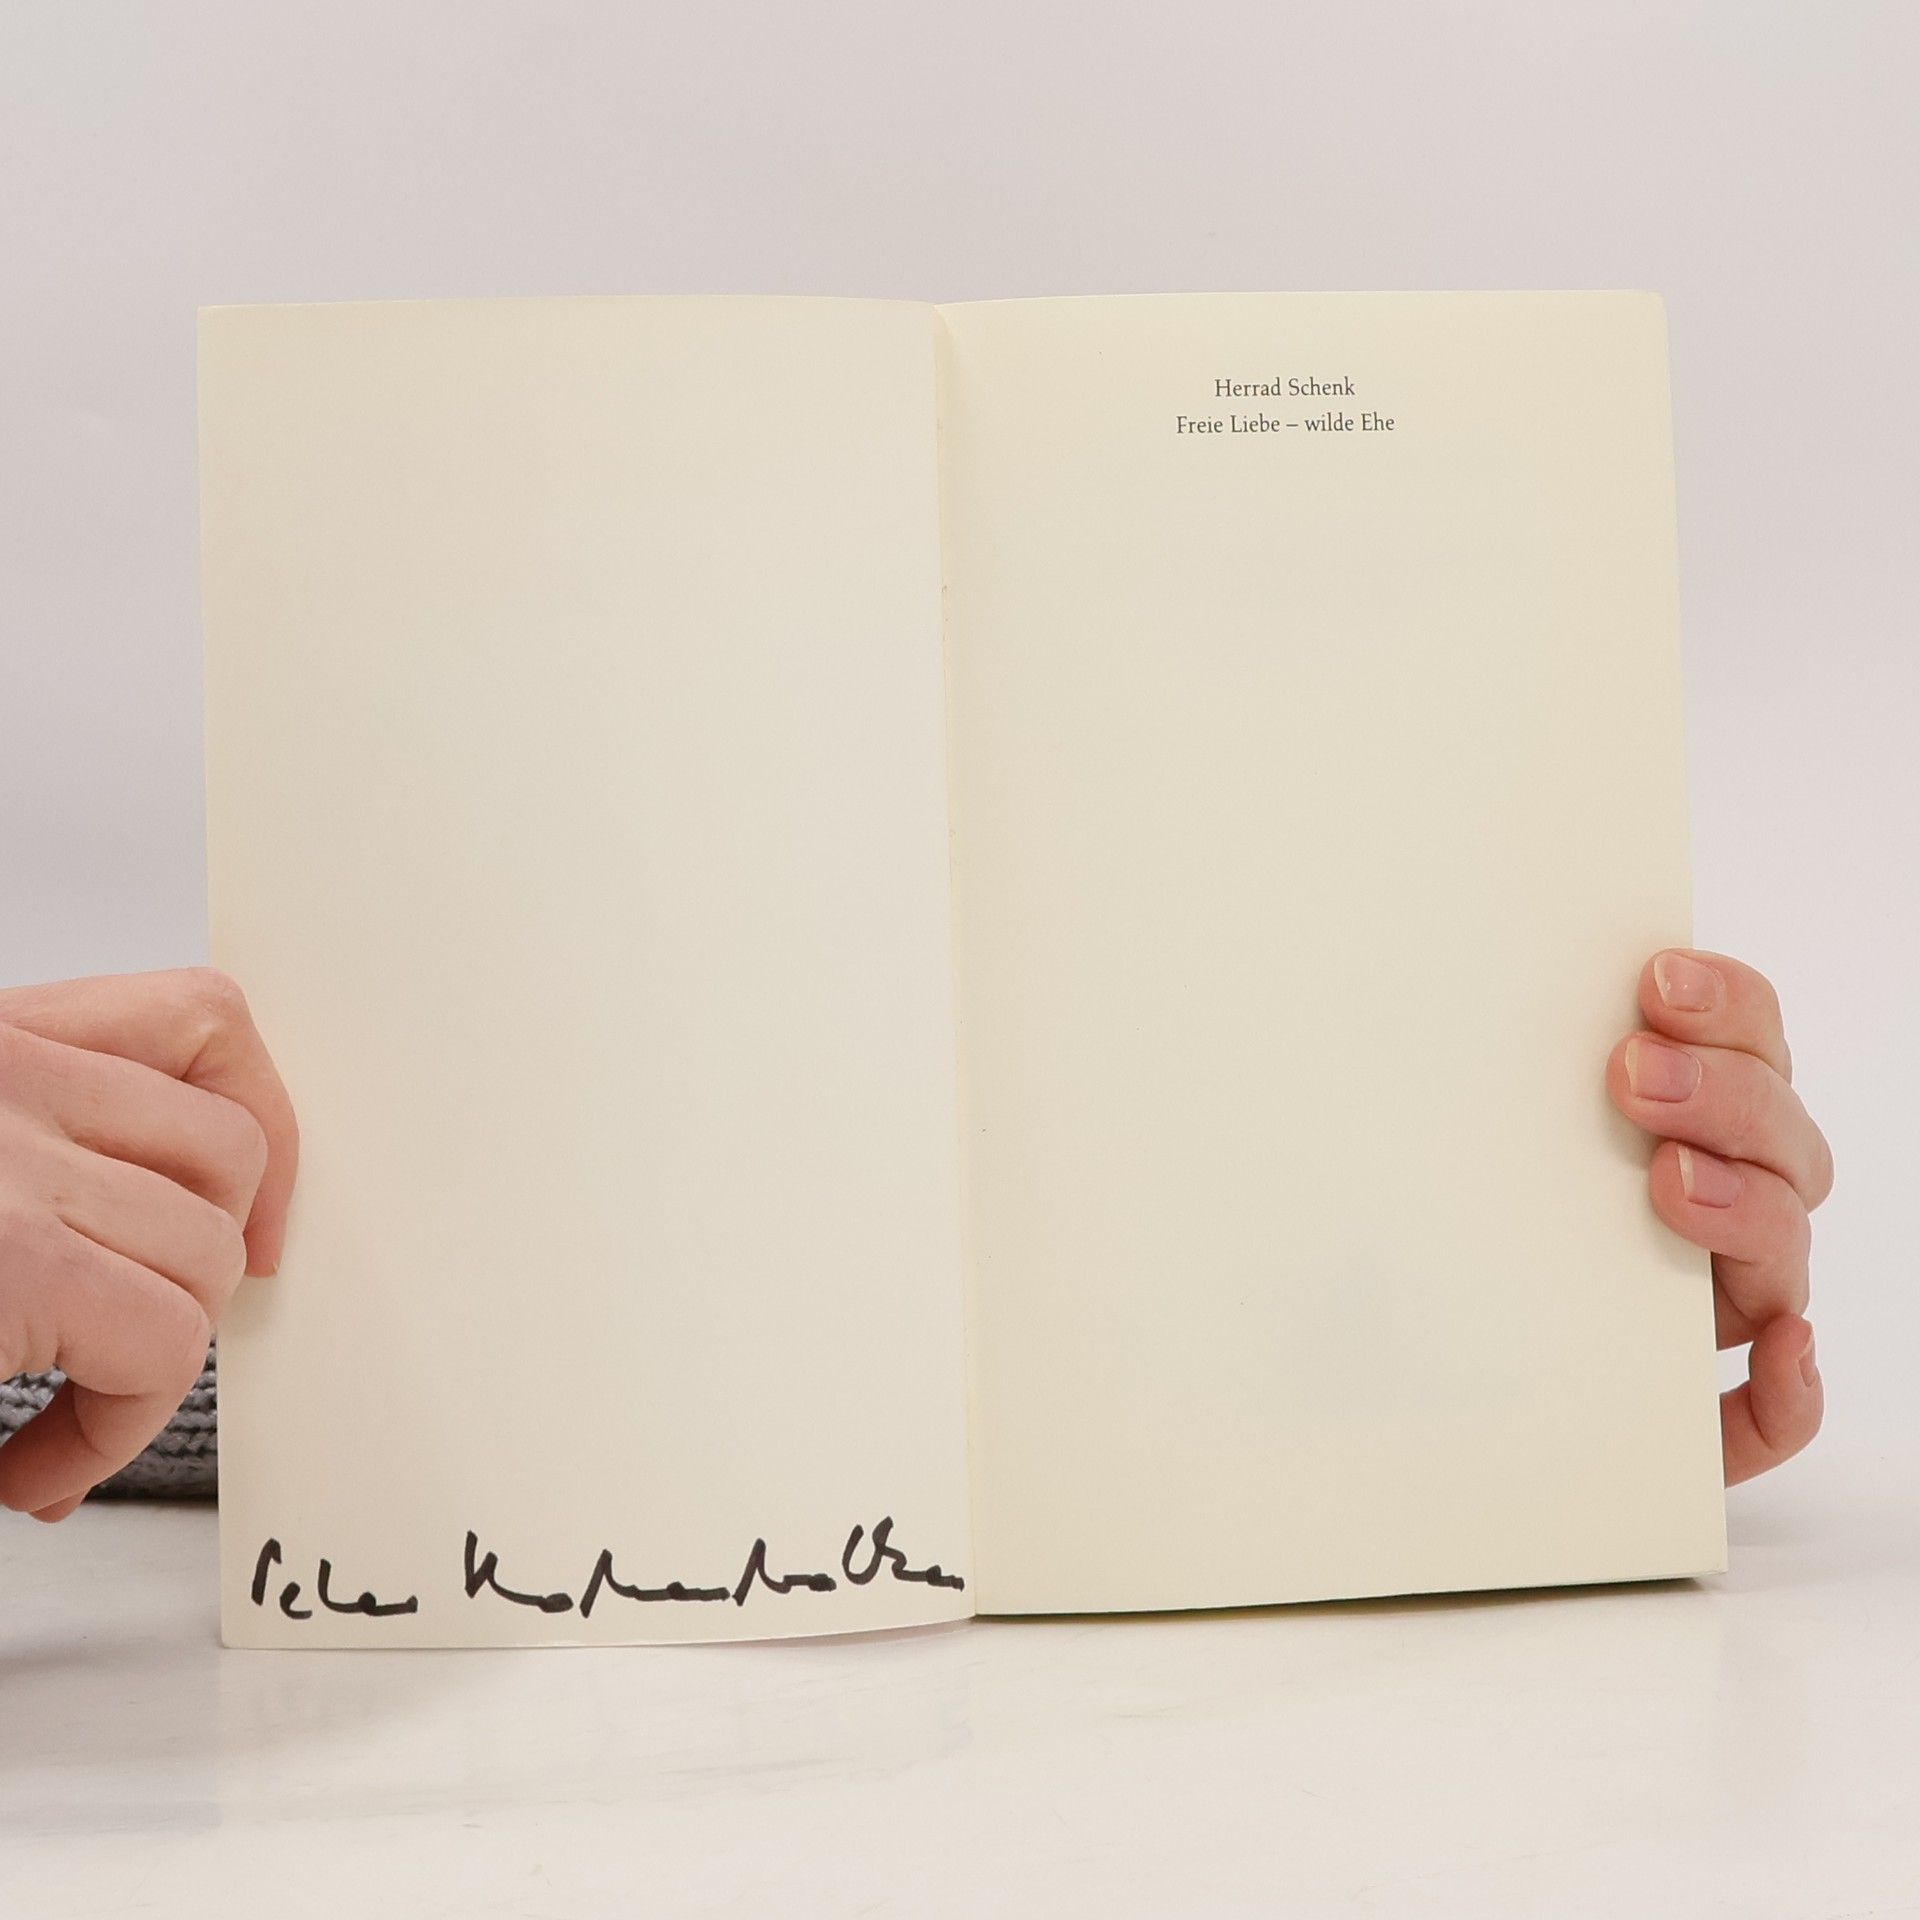 Peter
Herrad Schenk
Freie Liebe – wilde Ehe